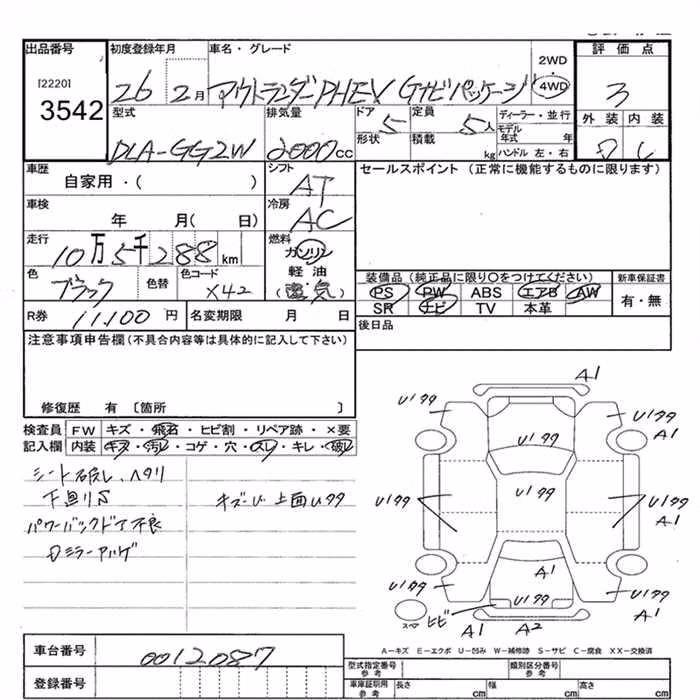 出品番号 初度登録年月 車名・グレード 評価点
[2220] 2WD
3542 26 2月 アウトランダーPHEV Gナビパッケージ 4WD 3
型式 排気量 ドア 定員 ディーラー・並行 外装 内装
5 5人 モデル年式 年
DLA-GG2W 2000cc 形状 積載 kg ハンドル 左・右 D C
車歴 シフト セールスポイント (正常に機能するものに限ります)
自家用・( ) AT
車検 冷房
年 月( 日) AC
走行 燃料
10万5千288km ガソリン
色 色替 色コード 軽油 装備品(純正品に限り○をつけてください) 新車保証書
ブラック X42 (電気) PS PW ABS エアB AW 有・無
SR ナビ TV 本革
R券 11,100円 名変期限 月 日 後日品
注意事項申告欄(不具合内容等は具体的に記入して下さい)
修復歴 有 〔箇所 〕
検査員 FW キズ・飛石・ヒビ割・リペア跡・×要
記入欄 内装 キズ・汚レ・コゲ・穴・スレ・キレ・破レ
シート破レ、ヘタリ
下廻りS キズ・U 上面Uタタ
パワーバックドア不良
Dミラーアルゲ
A1
Uタタ Uタタ A1
Uタタ
Uタタ Uタタ Uタタ A1
A1
Uタタ Uタタ Uタタ A1
スペア ヒビ A1 A2
A-キズ E-エクボ U-凹み W-補修跡 S-サビ C-腐食 XX-交換済
車台番号 0012087
型式指定番号 参考 類別区分番号 参考
登録番号 車庫証明用 参考 長さ cm 幅 cm 高さ cm